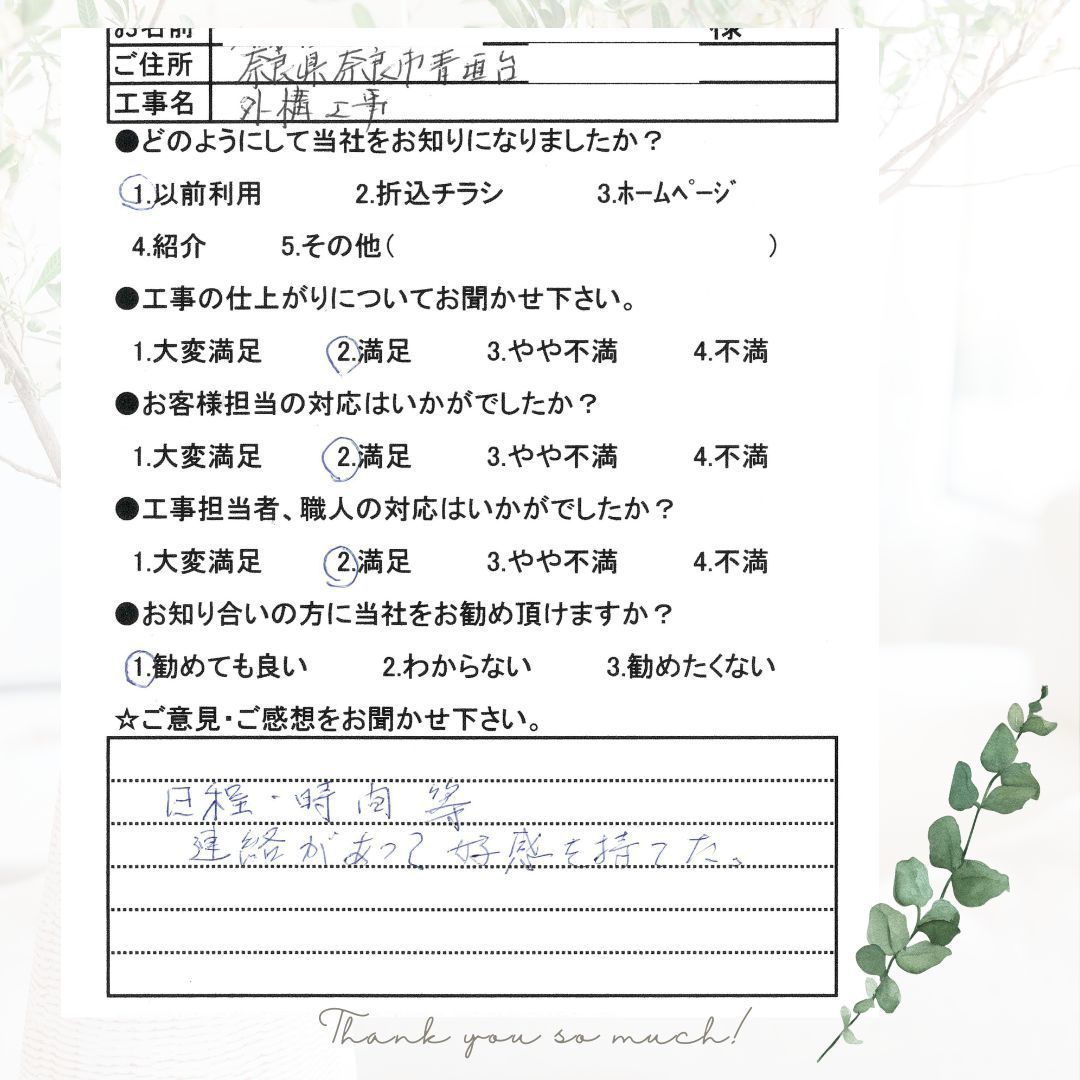 お名前 様
ご住所 奈良県奈良市青垣台
工事名 外構工事
●どのようにして当社をお知りになりましたか？
1.以前利用 2.折込チラシ 3.ﾎｰﾑﾍﾟｰｼﾞ
4.紹介 5.その他( )
●工事の仕上がりについてお聞かせ下さい。
1.大変満足 2.満足 3.やや不満 4.不満
●お客様担当の対応はいかがでしたか？
1.大変満足 2.満足 3.やや不満 4.不満
●工事担当者、職人の対応はいかがでしたか？
1.大変満足 2.満足 3.やや不満 4.不満
●お知り合いの方に当社をお勧め頂けますか？
1.勧めても良い 2.わからない 3.勧めたくない
☆ご意見・ご感想をお聞かせ下さい。
日程・時間等
連絡があって好感を持てた。
Thank you so much!